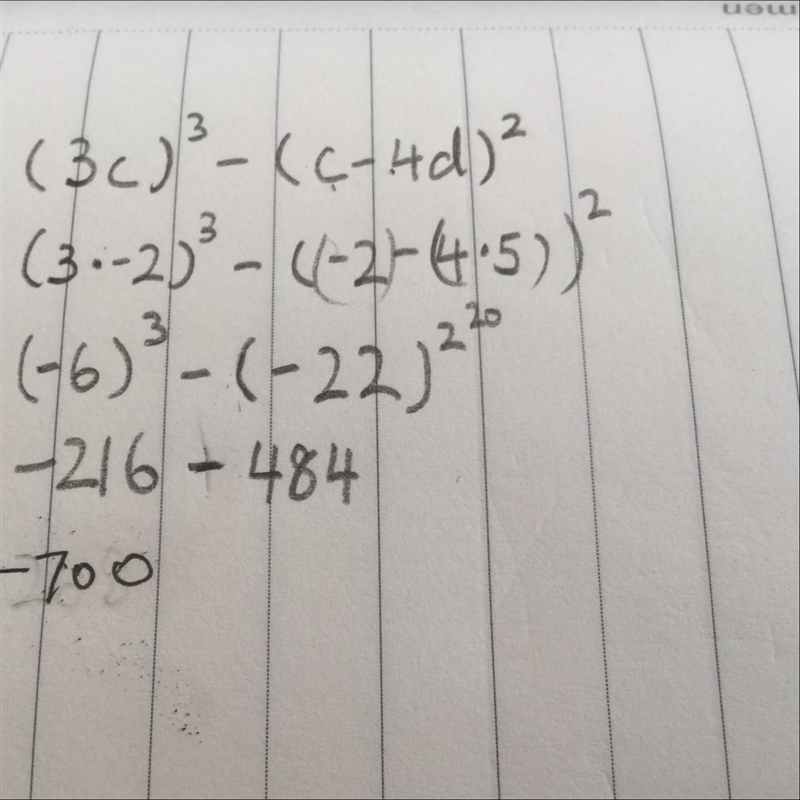 (3c)³ - (c-4d)²
(3·-2)³ - ((-2)-(4·5))²
(-6)³ - (-22)²²⁰
-216 - 484
-700